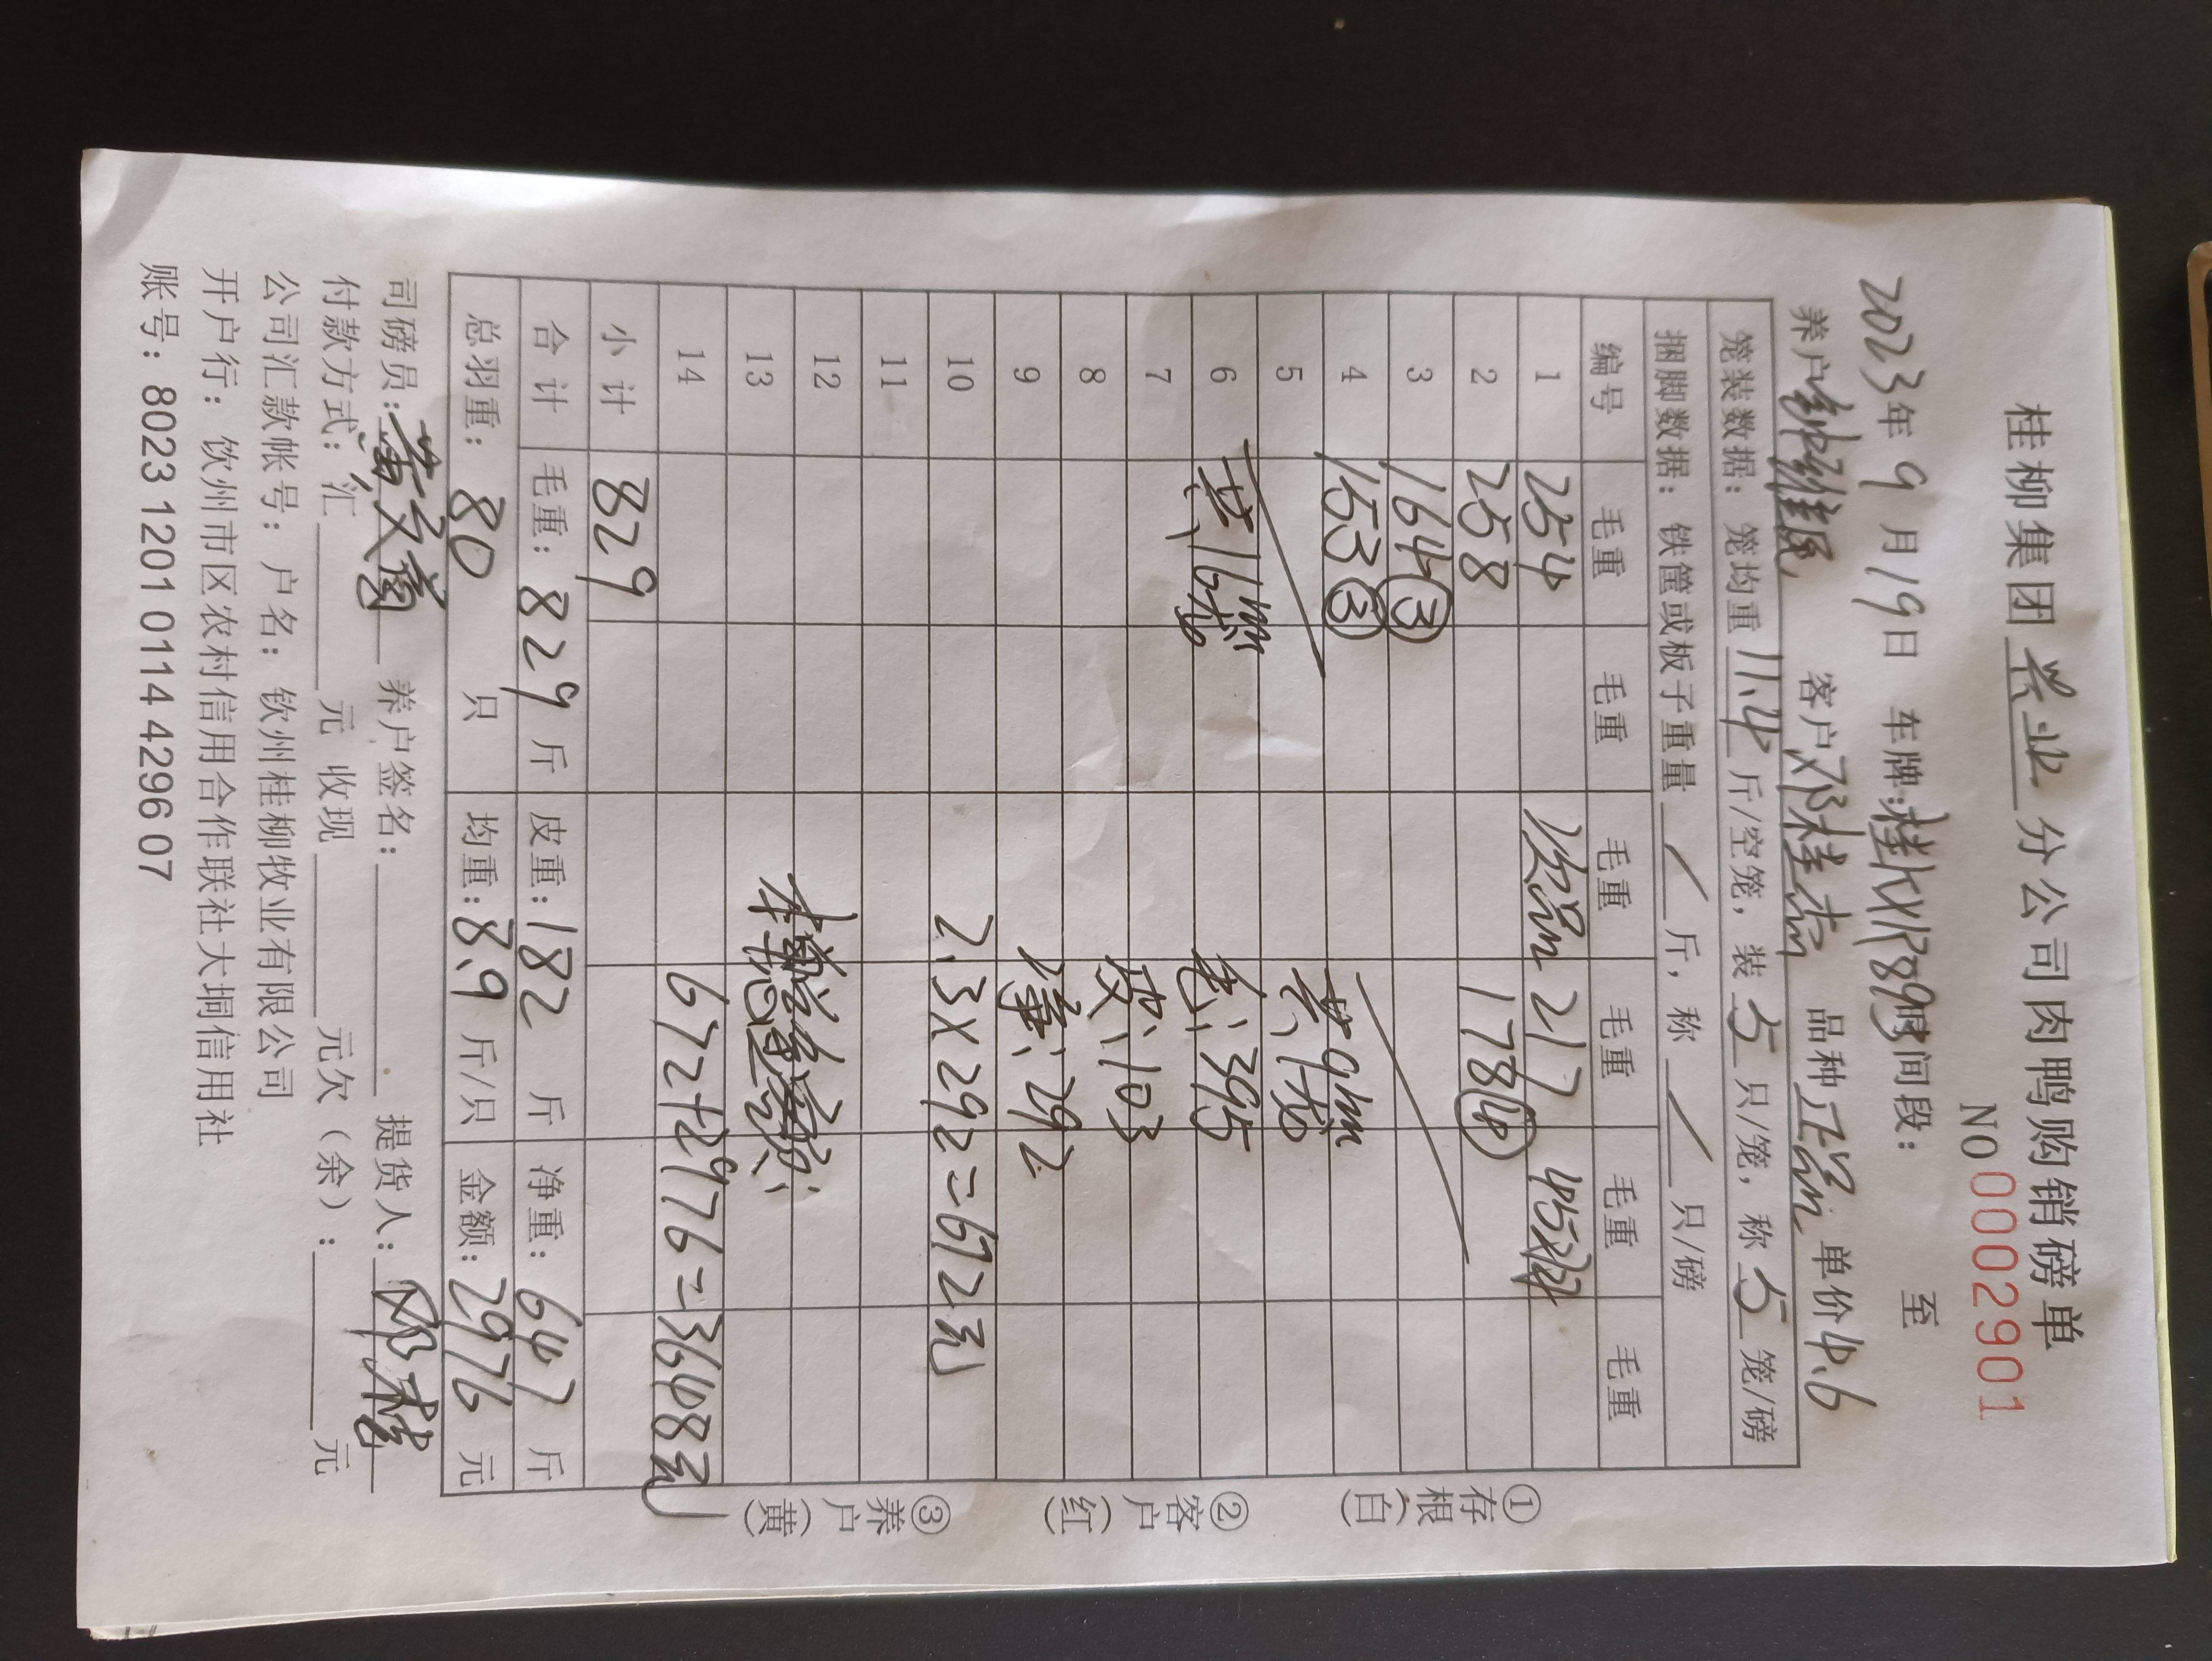 桂柳集团兴业分公司肉鸭购销磅单
NO 0002901
2023年9月19日 车牌:桂KYR893 时间段: 至
养户 客户邓桂杰 品种正品 单价4.6
笼装数据: 笼均重11.4斤/空笼, 装5只/笼, 称5笼/磅
捆脚数据: 铁筐或板子重量/斤, 称/只/磅
编号 毛重 毛重 毛重 毛重 毛重 毛重
1 254 次品 217 45羽
2 258 178④
3 164③
4 153③ 共9笼
5 共1板
6 共16笼 毛:395
7 皮:103
8
9 净:292
10 2.3×292=672元
11
12 本单
13
14 672+2976=3648元
小计 829
合计 毛重: 829斤 皮重: 182斤 净重: 647斤
总羽重: 80只 均重: 8.9斤/只 金额: 2976元
司磅员: 养户签名: 提货人: 邓桂
付款方式: 汇 元 收现 元欠(余): 元
公司汇款帐号: 户名: 钦州桂柳牧业有限公司
开户行: 饮州市区农村信用合作联社大垌信用社
账号: 8023 1201 0114 4296 07
①存根(白)
②客户(红)
③养户(黄)